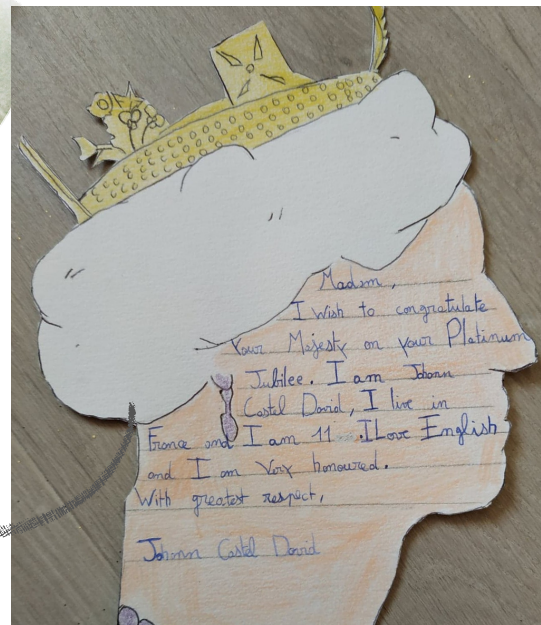 Madam,
I Wish to congratulate
Your Majesty on your Platinum
Jubilee. I am Johann
Castel David, I live in
France and I am 11 .I Love English
and I am Very honoured.
With greatest respect,
Johann Castel David